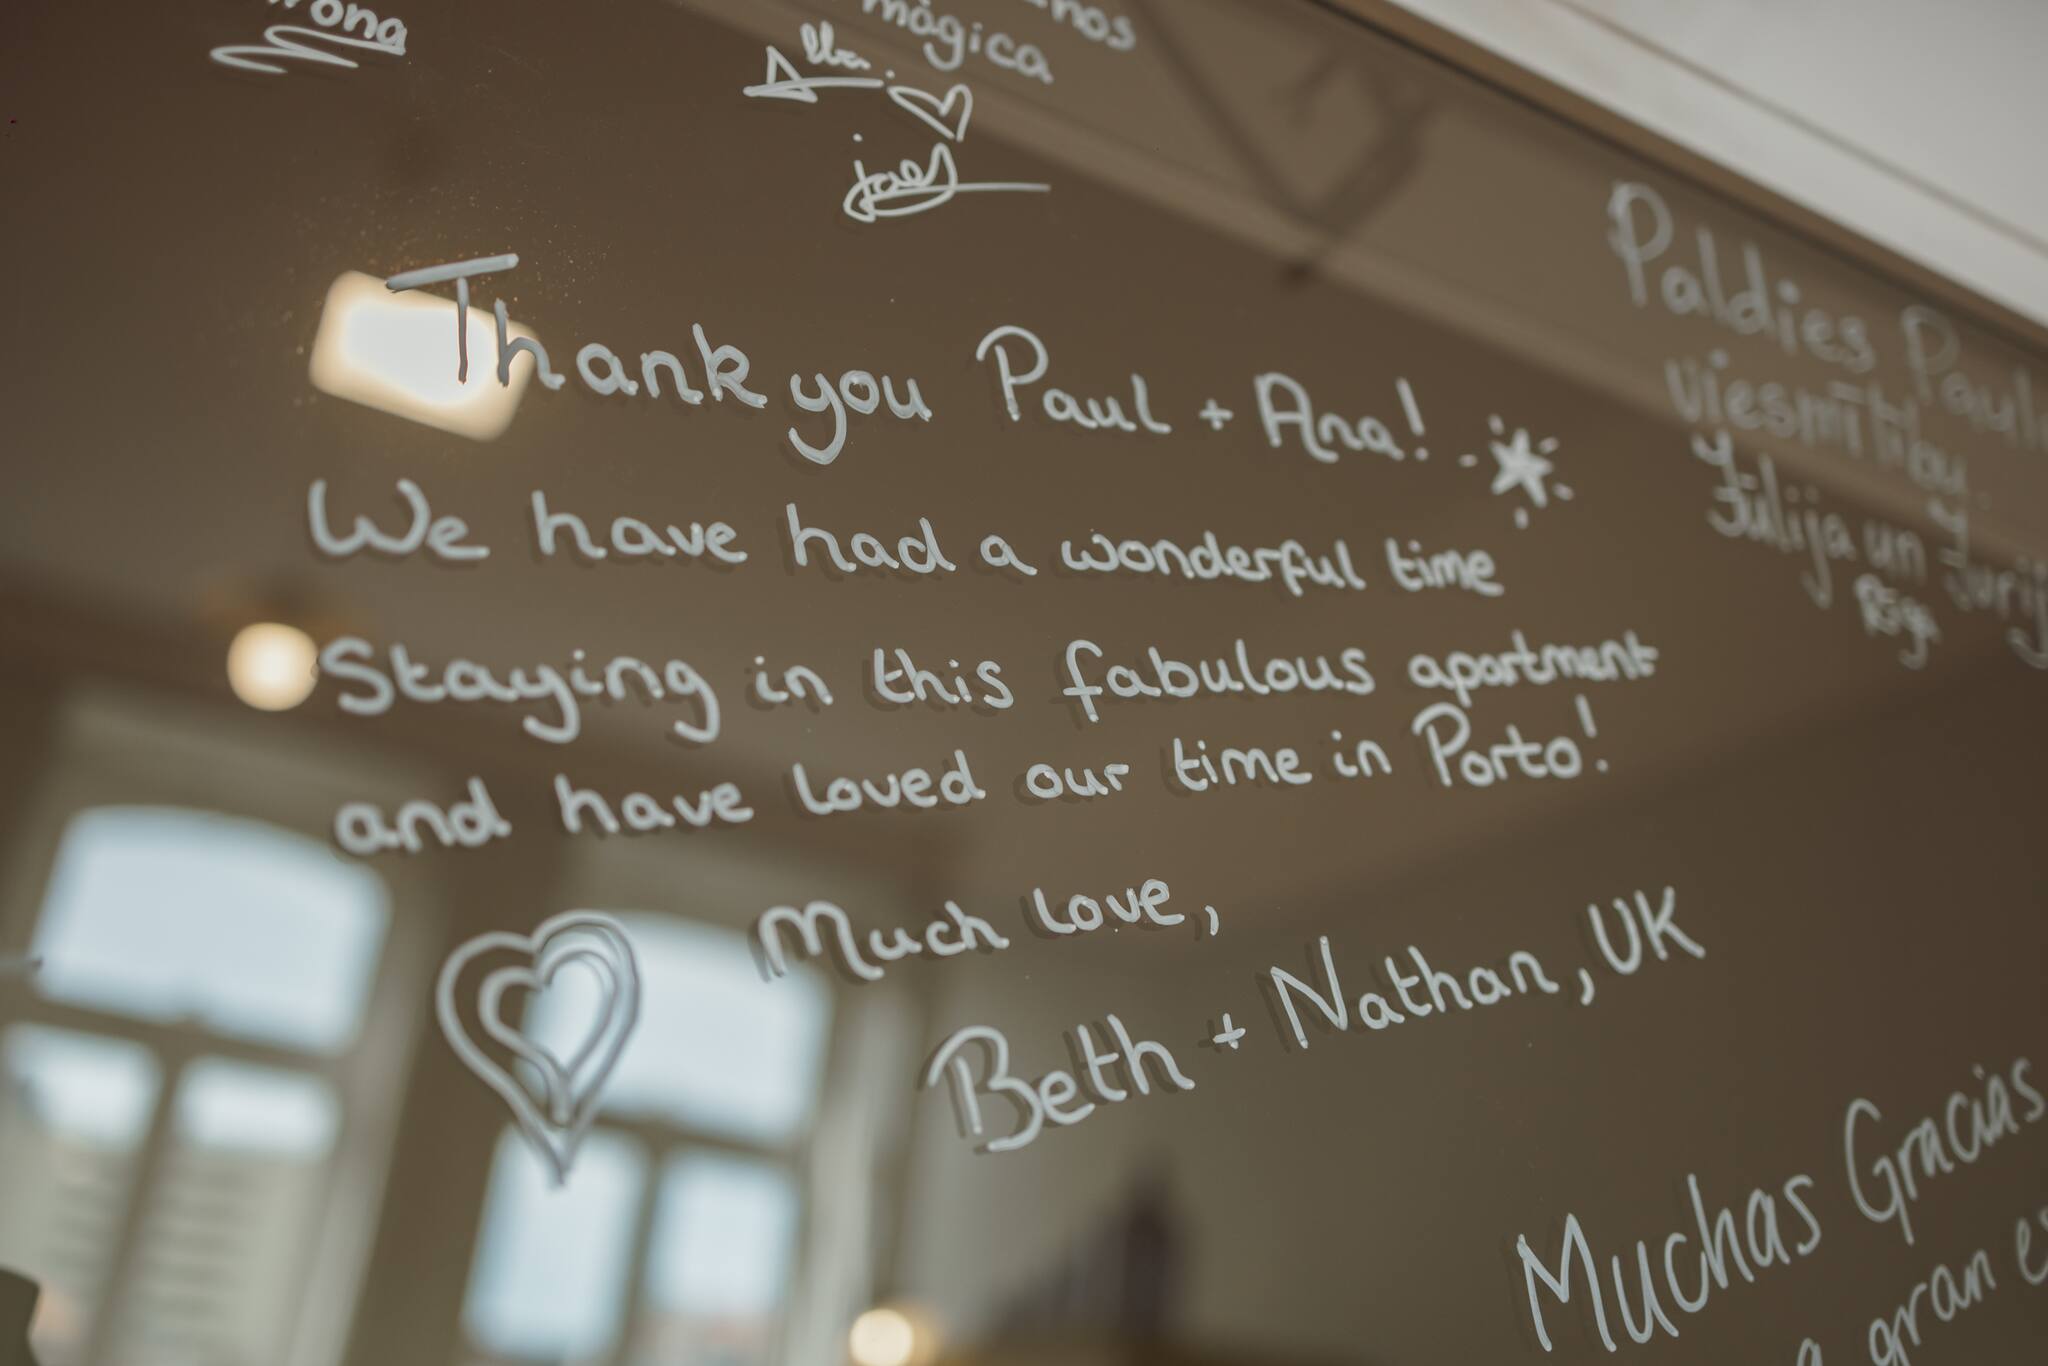 mágica
Thank you Paul + Ana!
We have had a wonderful time
Staying in this fabulous apartment
and have loved our time in Porto!
Much Love,
Beth + Nathan, UK
Paldies
Jūlija un
Rīga
Muchas Gracias
gran